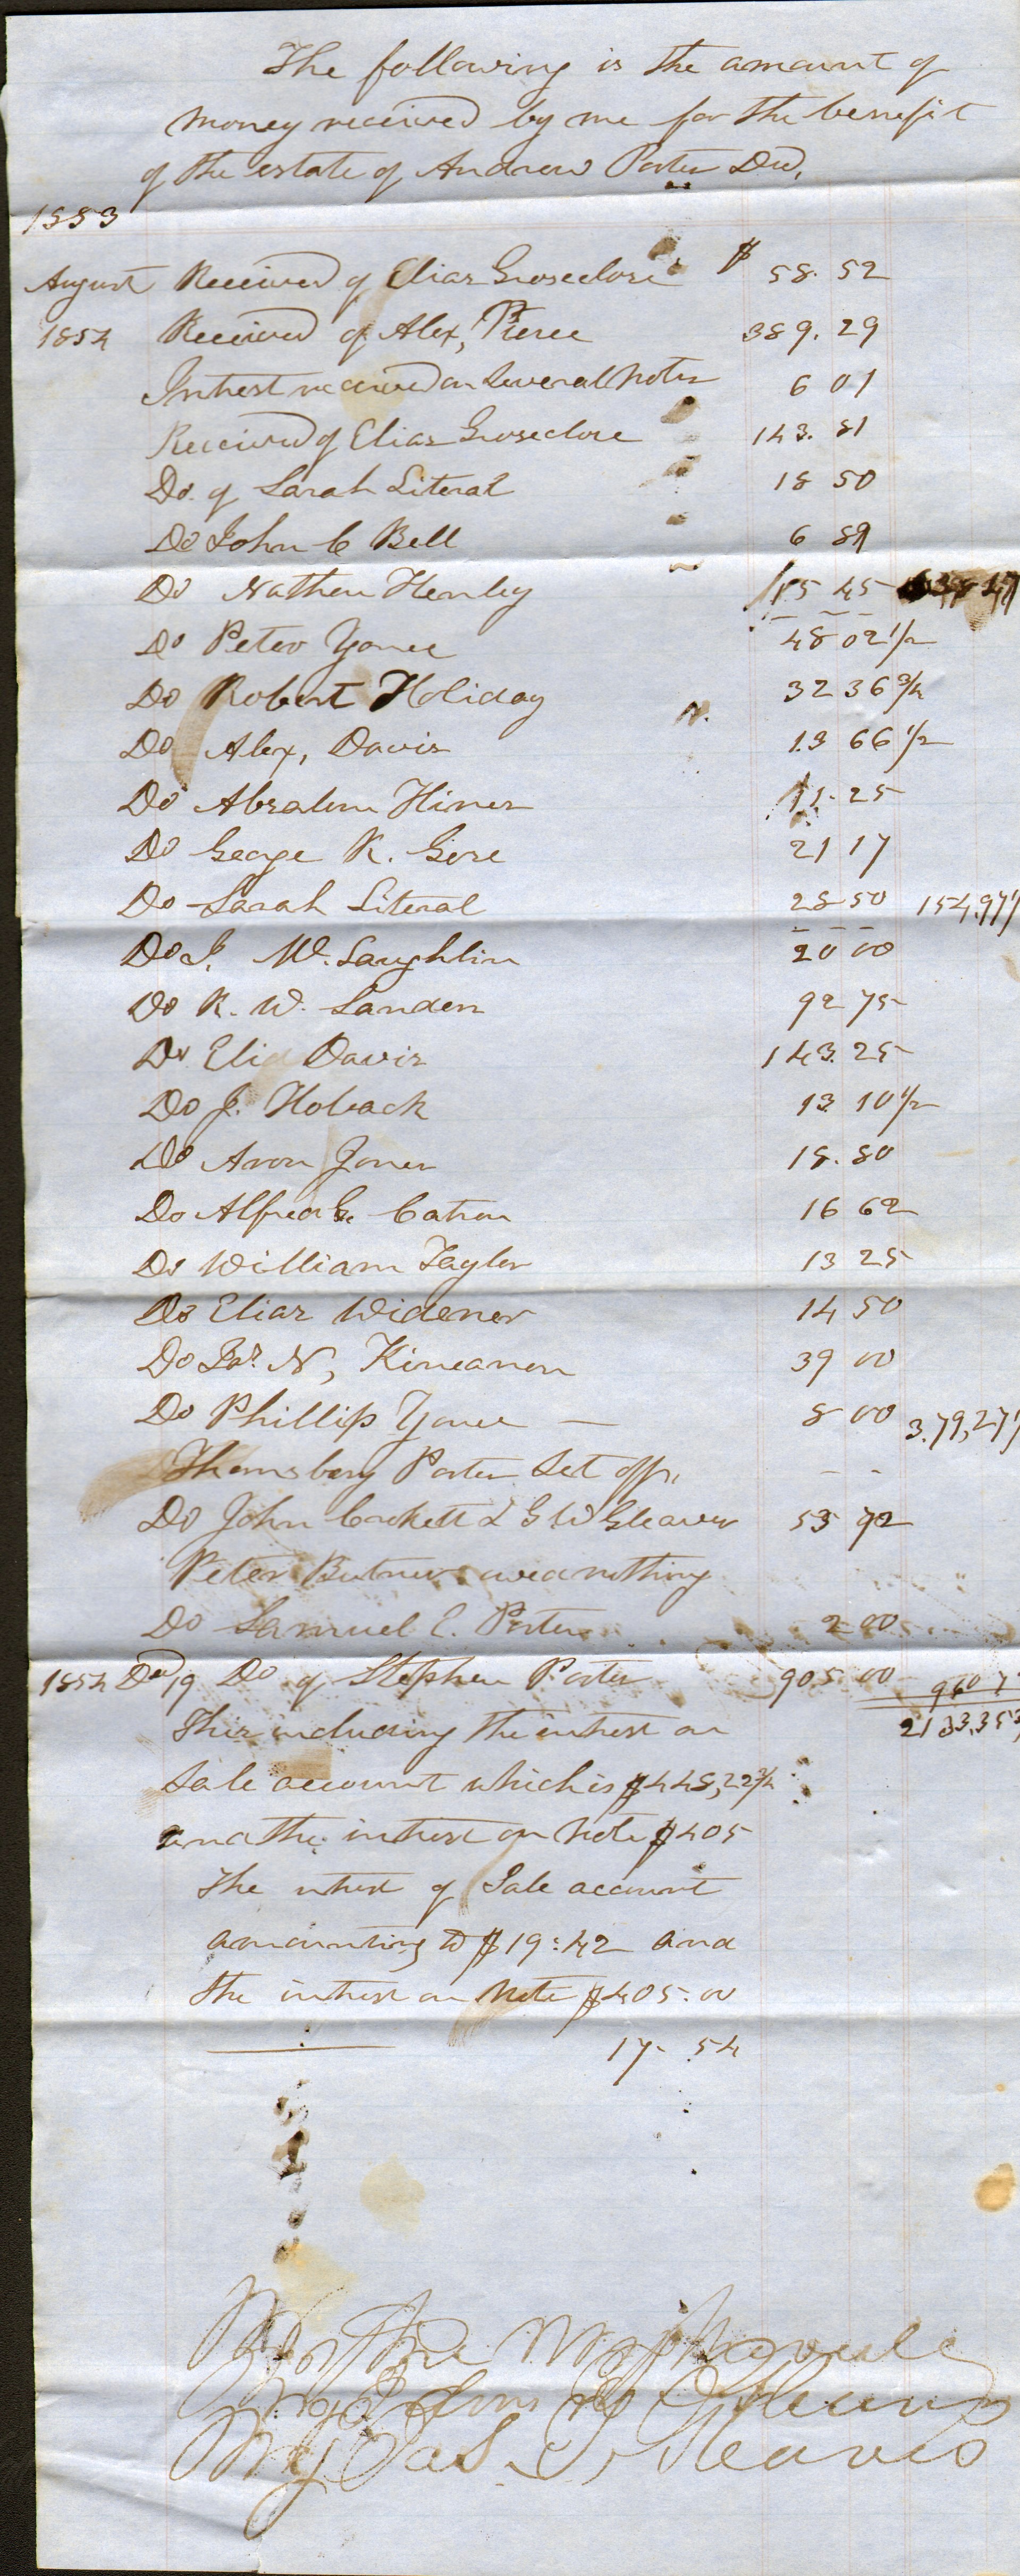 The following is the amount of
money received by me for the benefit
of the estate of Andrew Porter Decd,
1853
August Received of Elias Groseclose $ 58. 52
1854 Received of Alex, Pierce 389. 29
Intrest received on Several notes 6 01
Received of Elias Groseclose 143. 81
Do. of Sarah Literal 18 50
Do John C Bell 6 89
Do Nathen Henley 15 45
Do Peter Yonce 48 02 1/2
Do Robert Holiday 32 36 3/4
Do Alex, Davis 13 66 1/2
Do Absalem Hiner 11. 25
Do George K. Gose 21 17
Do Sarah Literal 28 50 154,97
Do J. McLaughlin 20 00
Do R. W. Sanders 92 75
Do Eli Davis 143. 25
Do J. Hoback 13. 10 1/2
Do Aron Jones 18. 80
Do Alfred G. Catron 16 62
Do William Tayler 13 25
Do Elias Widener 14 50
Do Jas. N, Kincanon 39 00
Do Phillip Yonce — 8 00 3.79,27
Thornsbery Porter Set off,
Do John Crockett & G W Gleaves 53 72
Peter Butner owed nothing
Do Samuel C. Porter 2 00
1854 Dec 19 Do of Stephen Porter 905 00 960 7
This including the intrest on 2133,353
Sale account which is $448,22 3/4
and the intrest on note $405
The intrest of Sale account
amounting to $19:42 and
the intrest on note $405.00
17. 54